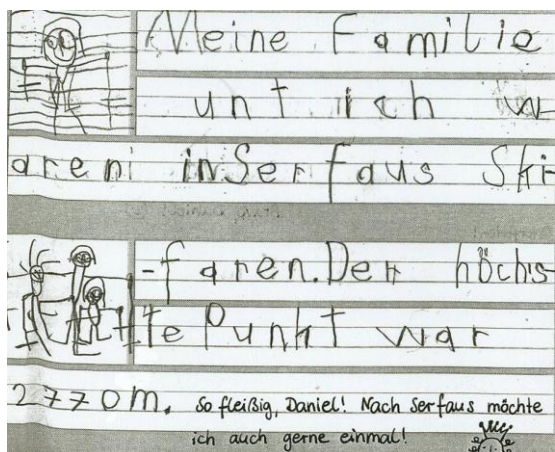 Meine Familie
unt ich w
aren in Serfaus Ski
-faren. Der höchs
te Punkt war
2770m. So fleißig, Daniel! Nach Serfaus möchte
ich auch gerne einmal!